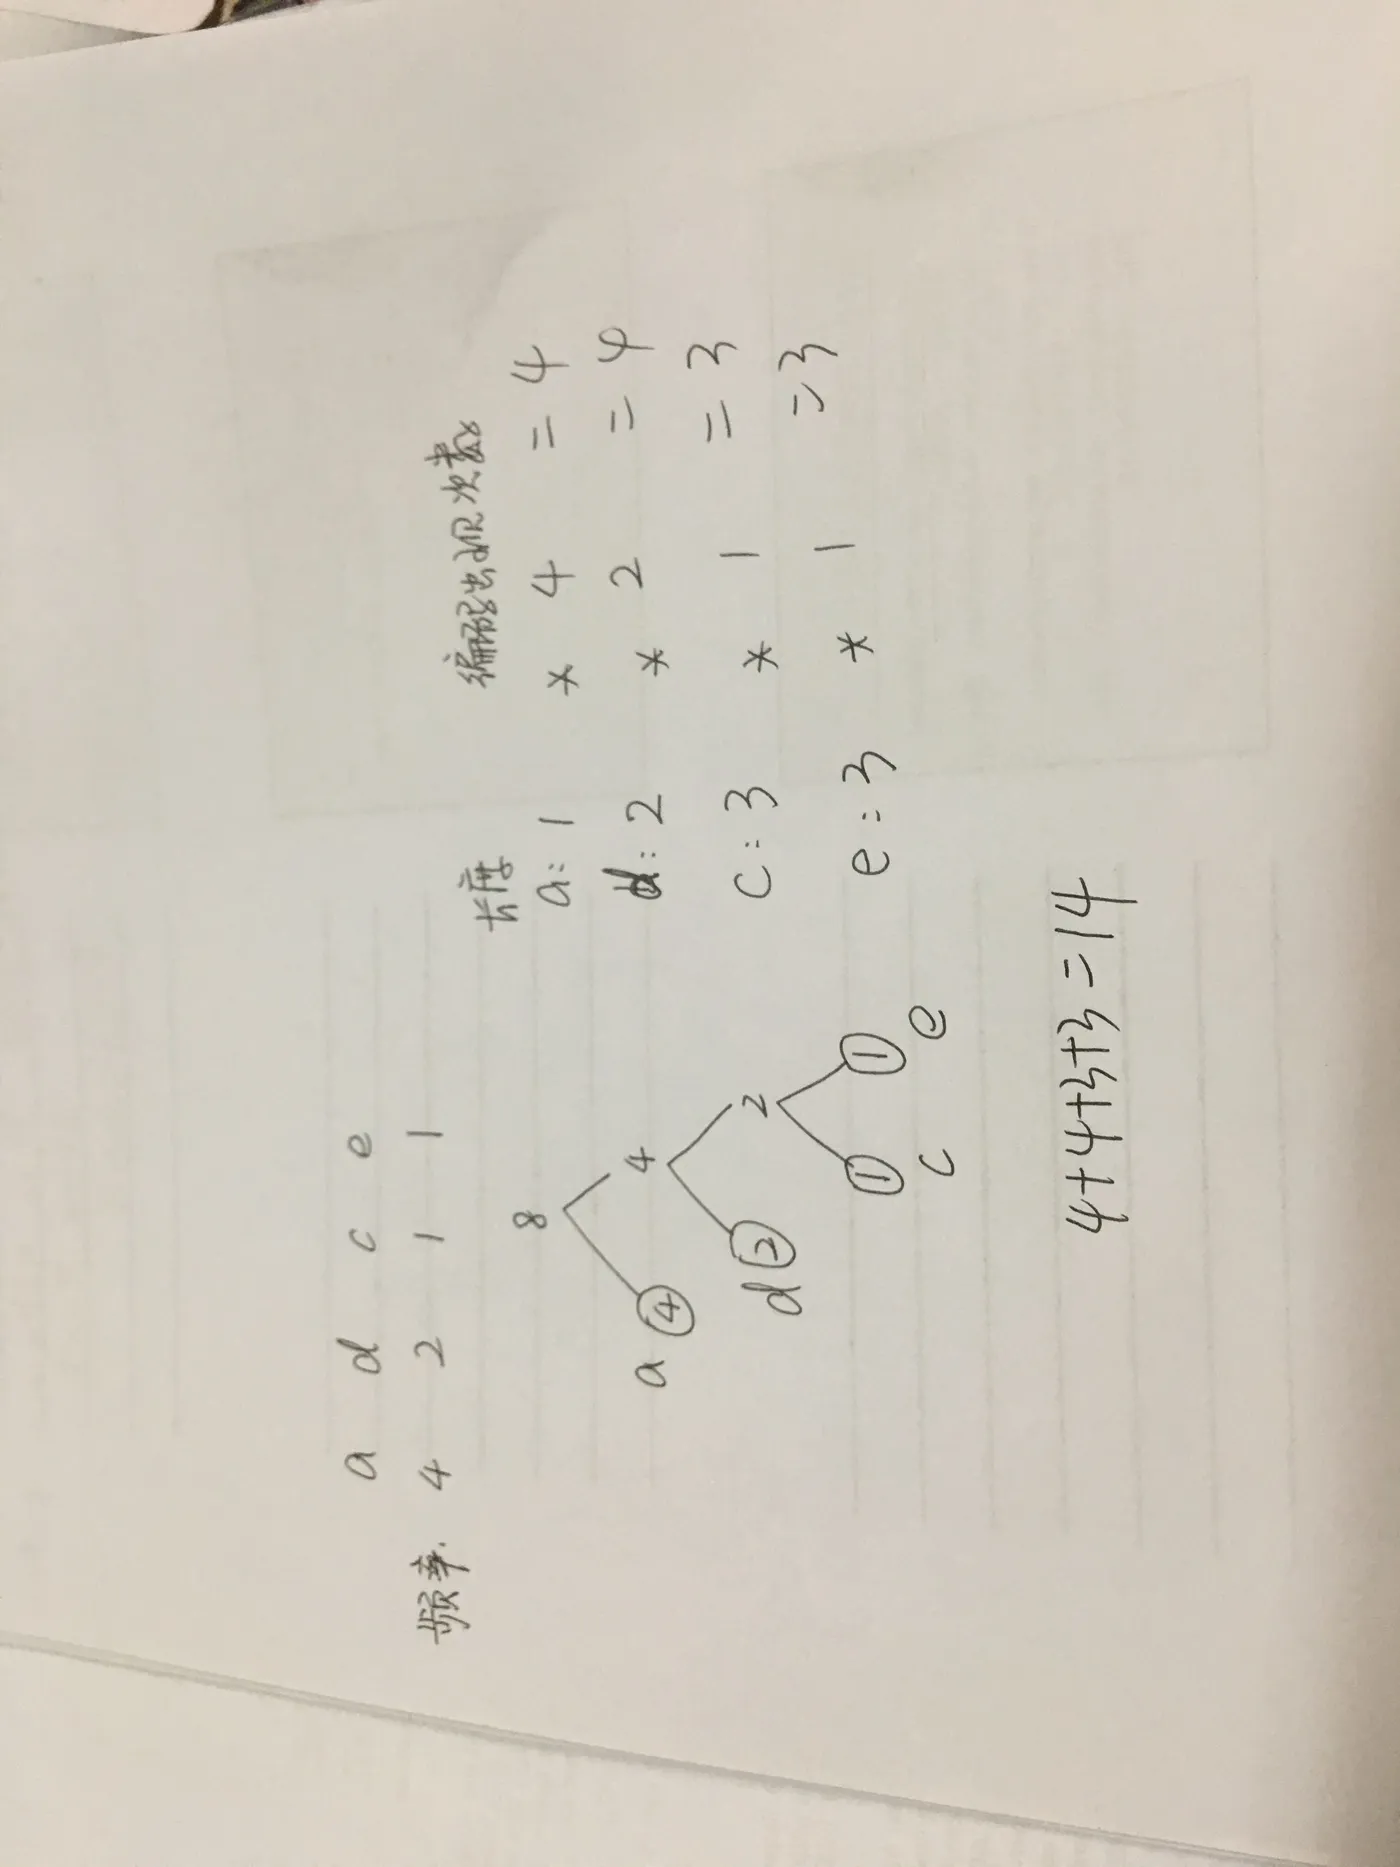 a d c e
频率. 4 2 1 1
长度 编码出现次数
8
a: 1 * 4 = 4
a ④ 4
d: 2 * 2 = 4
d ② 2
c: 3 * 1 = 3
① ①
e: 3 * 1 = 3
c e
4+4+3+3=14